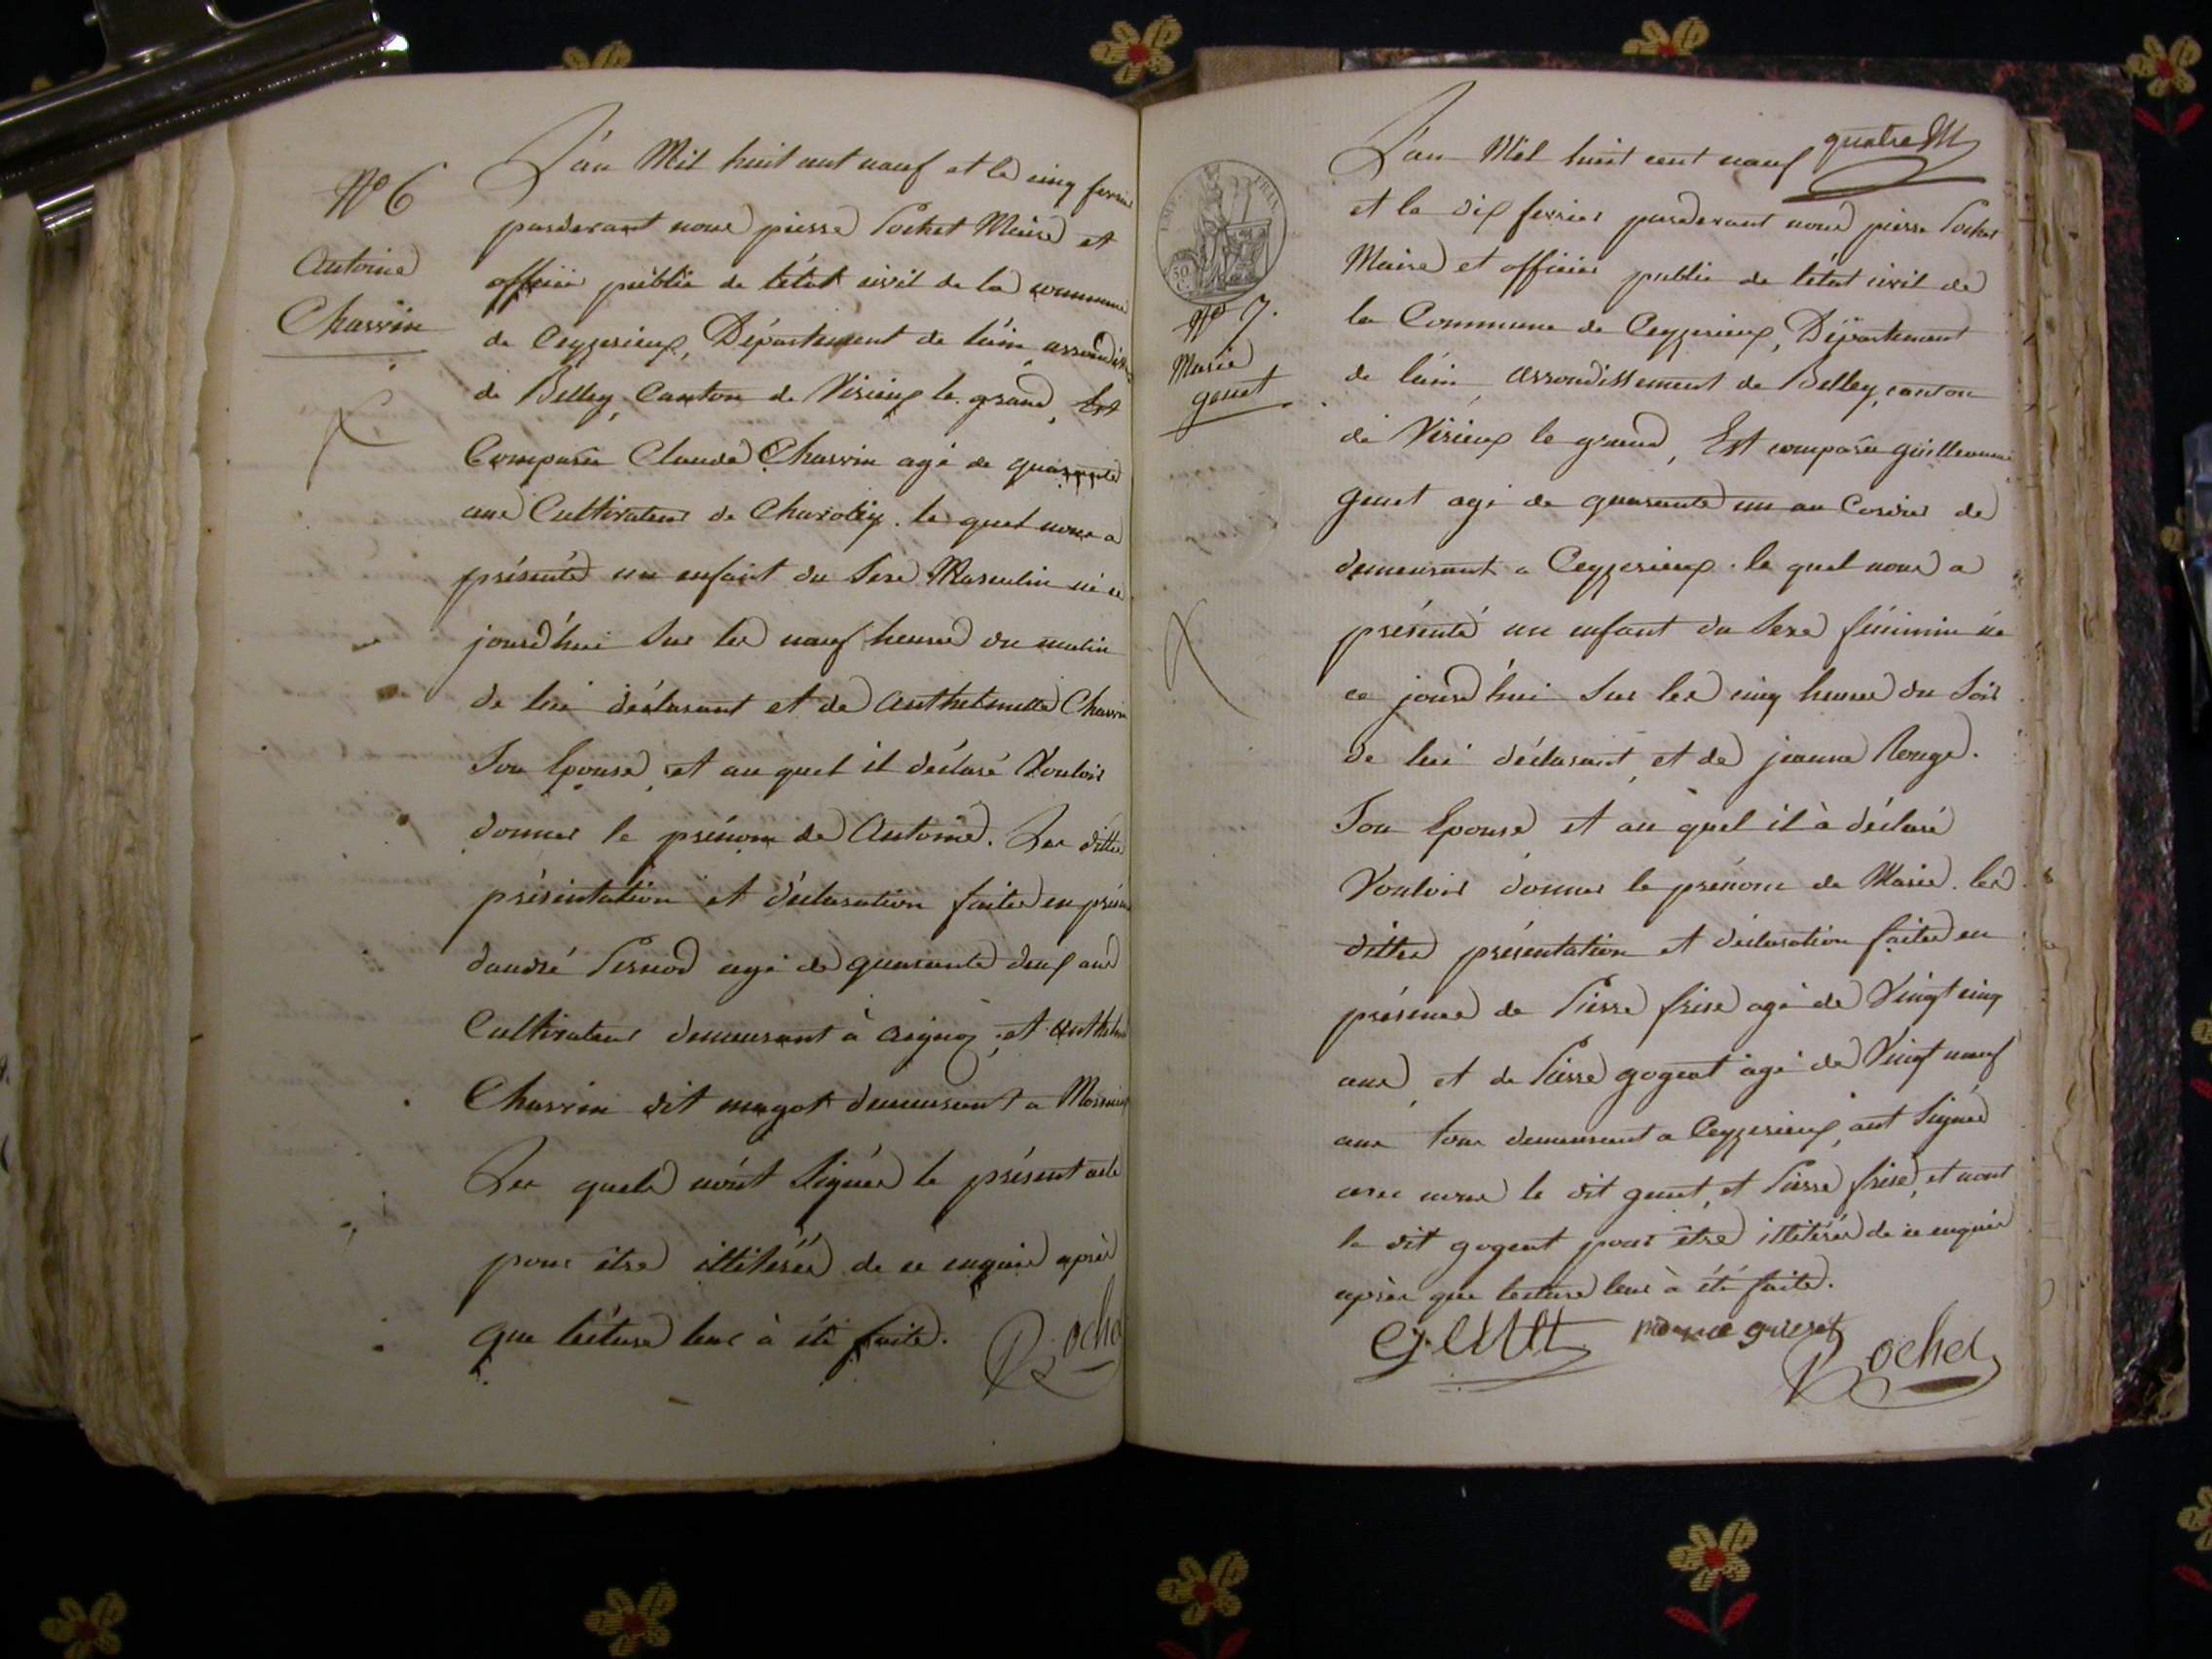 N° 6
Antoine
Charvin
L'an Mil huit cent neuf et le cinq fevrier
pardevant nous pierre Pochet Maire et
officier public de l'état civil de la commune
de Ceyzerieux, Département de l'ain, arrondis
de Belley, Canton de Virieux le grand, Est
Comparu Claude Charvin agé de quarante
ans Cultivateur de le quel nous a
présenté un enfant du Sexe Masculin né ce
jourd'hui Sur les neuf heures du matin
de lui déclarant et de Anthelmette Charvin
Son Epouse, et au quel il déclaré Vouloir
donner le prénom de Antoine. Les dittes
présentation et déclaration faites en présen
d'andré Pernod agé de quarante deux ans
Cultivateur demeurant à aignoz, et anthelme
Charvin dit magot demeurant a
Les quels n'ont Signés le présent acte
pour être illiterés de ce enquis après
que lecture leur à été faite.
Pochet
quatre
L'an Mil huit cent neuf
et le dix fevrier pardevant nous pierre Pochet
Maire et officier public de l'état civil de
la Commune de Ceyzerieux, Département
de l'ain, arrondissement de Belley, canton
de Virieux le grand, Est comparu guilleaume
genet agé de quarante un an de
demeurant a Ceyzerieux. le quel nous a
présenté un enfant du Sexe féminin né
ce jourd'hui Sur les cinq heures du Soir
de lui déclarant, et de jeanne Rouge.
Son Epouse et au quel il à déclaré
Vouloir donner le prénom de Marie. les
dittes présentation et déclaration faites en
présence de Pierre frise agé de Vingt cinq
ans, et de Pierre gogeat agé de Vingt neuf
ans tous demeurant a Ceyzerieux, ont Signés
avec nous le dit genet, et Pierre frise, et nont
le dit gogeat pour être illitérés de ce enquis
après que lecture leur à été faite.
N° 7.
Marie
genet
50 C.
genet
Pochet